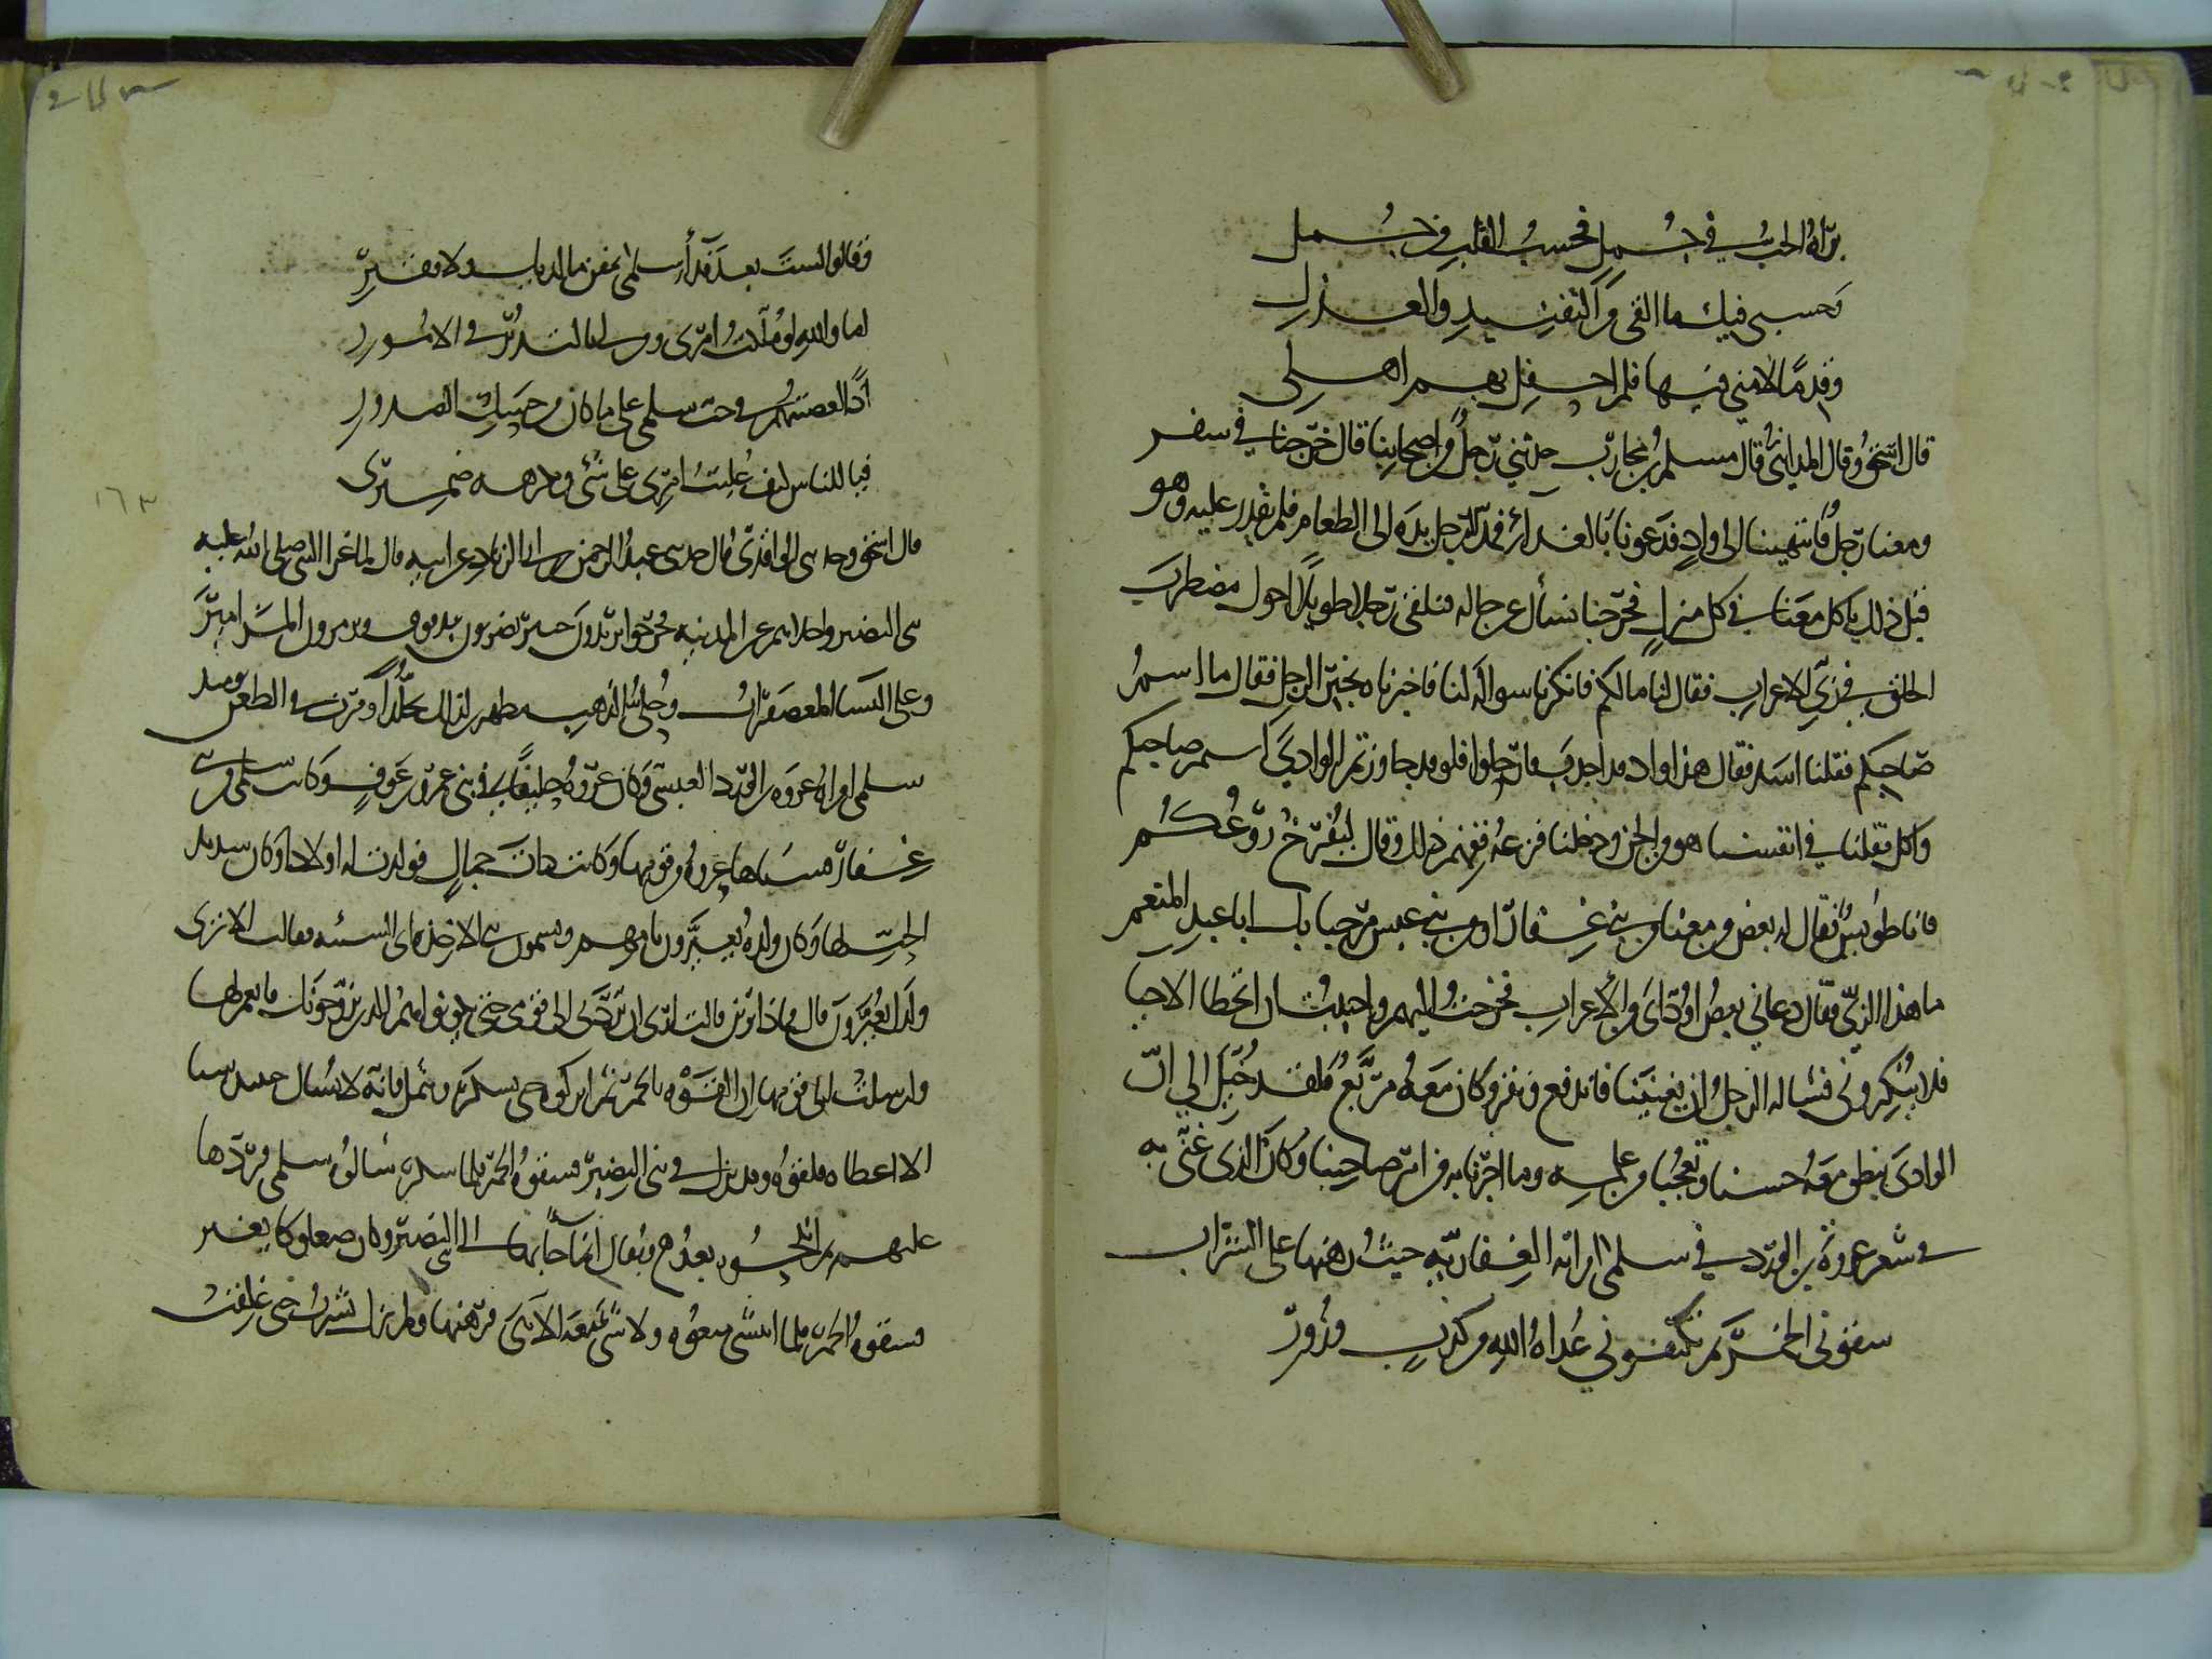 براه الحب في جسمل فحسب القلب من جمل
فحسبي فيك ما القى من التفنيد والعذل
وقدما لامني فيها فلم احفل بهم اهلي
قال اسحق وقال المدايني قال مسلم بن محارب حدثني رجل من اصحابنا قال خرجنا في سفر
ومعنا رجل فانتهينا الى واد فدعونا بالغداء فمد الرجل يده الى الطعام فلم يقدر عليه وهو
قبل ذلك ياكل معنا في كل منزل فخرجنا نسأل عن حاله فنلقى رجلا طويلا احول مضطرب
الخلق في زي الاعراب فقال لنا ما لكم فانكرنا سواله لنا فاخبرناه بخبر الرجل فقال ما اسم
صاحبكم فقلنا اسد فقال هذا واد قد اخذت فارحلوا فلو قد جاوزتم الوادي اسم صاحبكم
واكل فقلنا في انفسنا هو من الجن ودخلنا فزعة ففهم ذلك وقال ليفرخ روعكم
فانا طويس فقال له بعض من معنا من بني غفار او من بني عبس مرحبا بك ابا عبد المنعم
ما هذا الزي فقال دعاني بعض اودائي من الاعراب فخرجت اليهم واحببت ان اتخطا الاحيا
فلا ينكروني فسالت الرجل ان يغنينا فاندفع ونقر وكان معه مربع فلقد خيل الي ان
الوادي ينطق معه حسنا وتعجبنا من علمه وما اخبرنا به من امر صاحبنا وكان الذي غنى به
في شعر عروة بن الورد في سلمى امراته الغفارية حيث رهنها على الشراب
سقوني الخمر ثم تكنفوني عداة الله من كذب وزور
وقالوا لست بعد فدا سلمى بمغن ما لديك ولا فقير
اما والله لو ملكت امري ومن لي بالتدبر في الامور
اذا لعصيتهم في حب سلمى على ما كان من حسك الصدور
فيا للناس كيف غلبت امري على شي ويكرهه ضميري
قال اسحق وحدثني الواقدي قال حدثني عبد الرحمن بن ابي الزناد عن ابيه قال لما غزا النبي صلى الله عليه
بني النضير واجلاهم عن المدينة خرجوا يريدون خيبر يضربون بدفوف ويزمرون بالمزامير
وعلى النسا المعصفرات وحلي الذهب مظهرين لذلك تجلدا ومرت في الظعن يوميذ
سلمى امراة عروة بن الورد العبسي وكان عروة حليفا في بني عمرو بن عوف وكانت سلمى من بني
غفار فسباها عروة من قومها وكانت ذات جمال فولدت له اولادا وكان شديد
الحب لها وكان ولده يعيرون بامهم ويسمون بني الاخيذة اي السبية فقالت الا ترى
ولدك يعيرون قال فماذا ترين قالت ارى ان تردني الى قومي حتى يكونوا هم الذين يزوجونك فانعم لها
وارسلت الى قومها ان القوه بالخمر ثم اتركوه حتى يسكر ويثمل فانه لا يسال حينيذ شيا
الا اعطاه فلقوه وقد نزل في بني النضير فسقوه الخمر فلما سكر سالوه سلمى فردها
عليهم ثم انكحوه بعد ويقال انما جا بها الى بني النضير وكان صعلوكا يغير
فسقوه الخمر فلما انتشى منعوه ولا شي معه الا هي فرهنها ولم يزل يشرب حتى غلقت
١٦٣